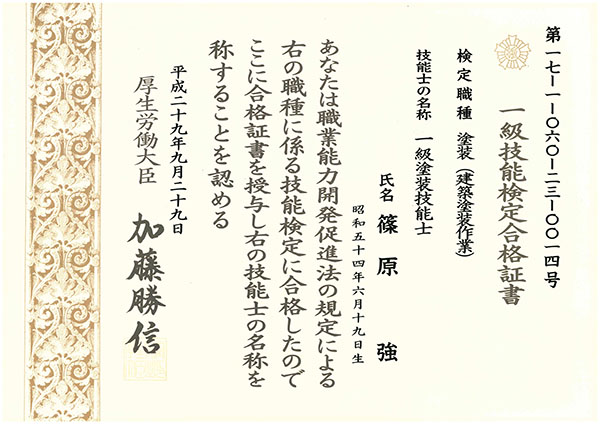 第一七ー一ー〇六〇ー二三ー〇〇一四号
一級技能検定合格証書
検定職種 塗装(建築塗装作業)
技能士の名称 一級塗装技能士
氏名 篠原 強
昭和五十四年六月十九日生
あなたは職業能力開発促進法の規定による
右の職種に係る技能検定に合格したので
ここに合格証書を授与し右の技能士の名称を
称することを認める
平成二十九年九月二十九日
厚生労働大臣 加藤勝信